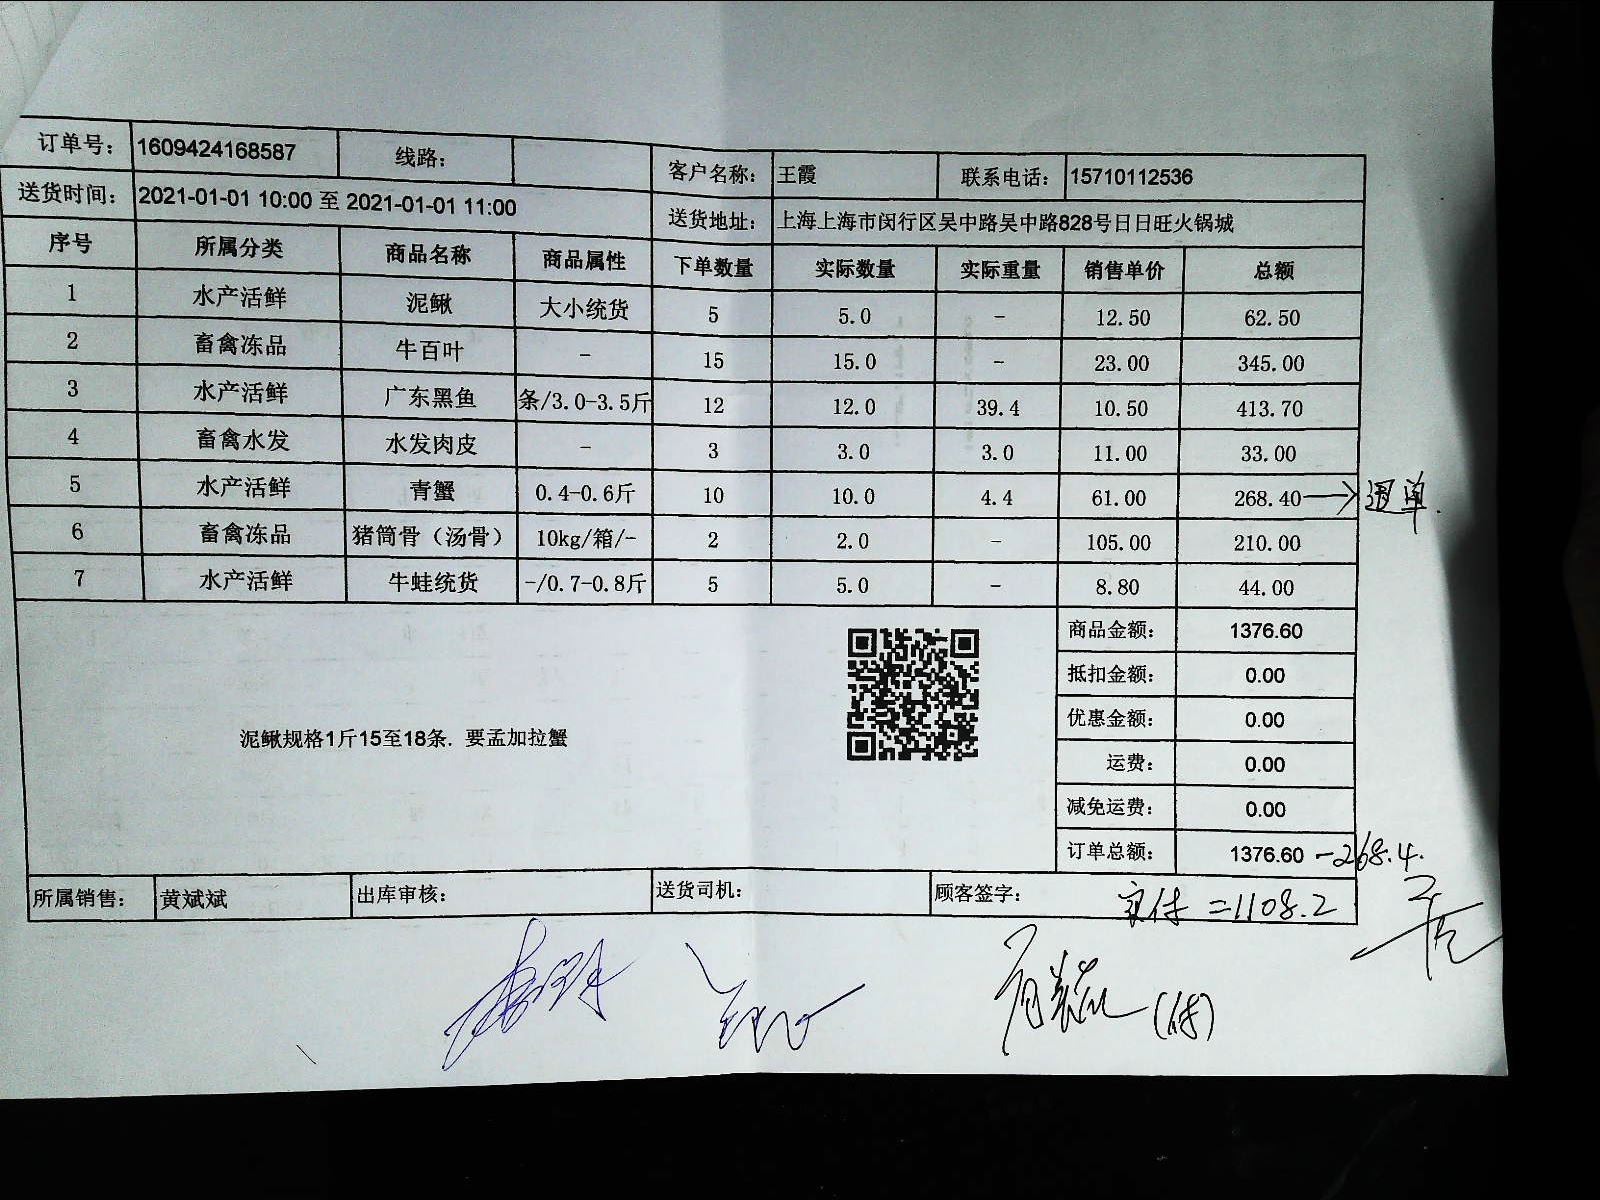 订单号： 1609424168587 线路： 客户名称： 王霞 联系电话： 15710112536
送货时间： 2021-01-01 10:00 至 2021-01-01 11:00 送货地址： 上海上海市闵行区吴中路吴中路828号日日旺火锅城
序号 所属分类 商品名称 商品属性 下单数量 实际数量 实际重量 销售单价 总额
1 水产活鲜 泥鳅 大小统货 5 5.0 - 12.50 62.50
2 畜禽冻品 牛百叶 - 15 15.0 - 23.00 345.00
3 水产活鲜 广东黑鱼 条/3.0-3.5斤 12 12.0 39.4 10.50 413.70
4 畜禽水发 水发肉皮 - 3 3.0 3.0 11.00 33.00
5 水产活鲜 青蟹 0.4-0.6斤 10 10.0 4.4 61.00 268.40 → 退单.
6 畜禽冻品 猪筒骨（汤骨） 10kg/箱/- 2 2.0 - 105.00 210.00
7 水产活鲜 牛蛙统货 -/0.7-0.8斤 5 5.0 - 8.80 44.00
商品金额： 1376.60
抵扣金额： 0.00
优惠金额： 0.00
泥鳅规格1斤15至18条. 要孟加拉蟹
运费： 0.00
减免运费： 0.00
订单总额： 1376.60 -268.4.
所属销售： 黄斌斌 出库审核： 送货司机： 顾客签字： 实付 =1108.2